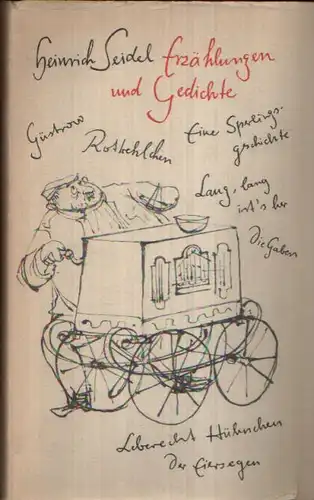 Heinrich Seidel Erzählungen
und Gedichte
Güstrow
Rotkehlchen
Eine Sperlings-
geschichte
Lang, lang
ist's her
Die Gaben
Leberecht Hühnchen
Der Eiersegen